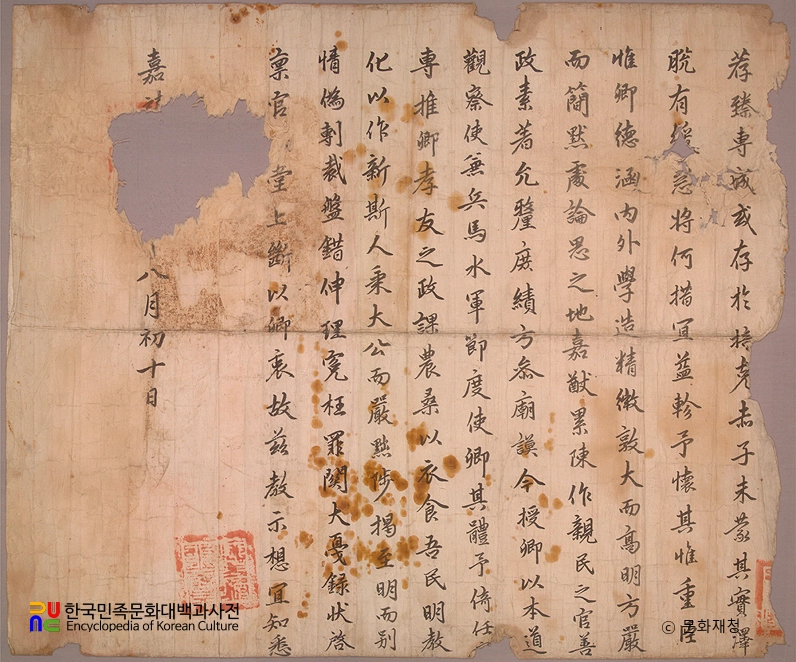 荐臻專誠或存於持危赤子未蒙其實澤
脫有緩急將何措宜益軫予懷其惟重臣
惟卿德涵內外學造精微敦大而高明方嚴
而簡默處論思之地嘉猷累陳作親民之官善
政素著允釐庶績方叅廟謨今授卿以本道
觀察使兼兵馬水軍節度使卿其體予倚任
專推卿孝友之政課農桑以衣食吾民明敎
化以作新斯人秉大公而嚴黜陟揭至明而別
情僞剸裁盤錯伸理冤枉罪關大戾錄狀啓
稟官 堂上斷以卿衷故玆敎示想宜知悉
嘉靖 八月初十日
한국민족문화대백과사전
Encyclopedia of Korean Culture
© 문화재청